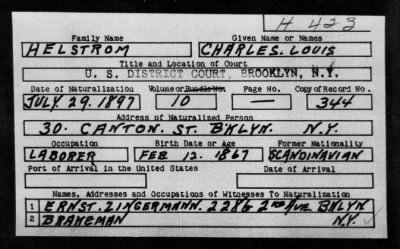 H 423
Family Name Given Name or Names
HELSTROM CHARLES. LOUIS
Title and Location of Court
U. S. DISTRICT COURT, BROOKLYN, N.Y.
Date of Naturalization Volume or Bundle No. Page No. Copy of Record No.
JULY. 29. 1897 10 — 344
Address of Naturalized Person
30. CANTON. ST. BKLYN. N.Y.
Occupation Birth Date or Age Former Nationality
LABORER FEB 12. 1867 SCANDINAVIAN
Port of Arrival in the United States Date of Arrival
Names, Addresses and Occupations of Witnesses To Naturalization
1 ERNST. ZINGERMANN. 228 2ND AVE BKLYN
2 BRAKEMAN N.Y.